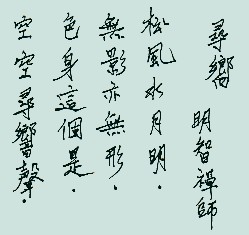 尋響
明智禪師
松風水月明．
無影亦無形．
色身這個是．
空空尋響聲．